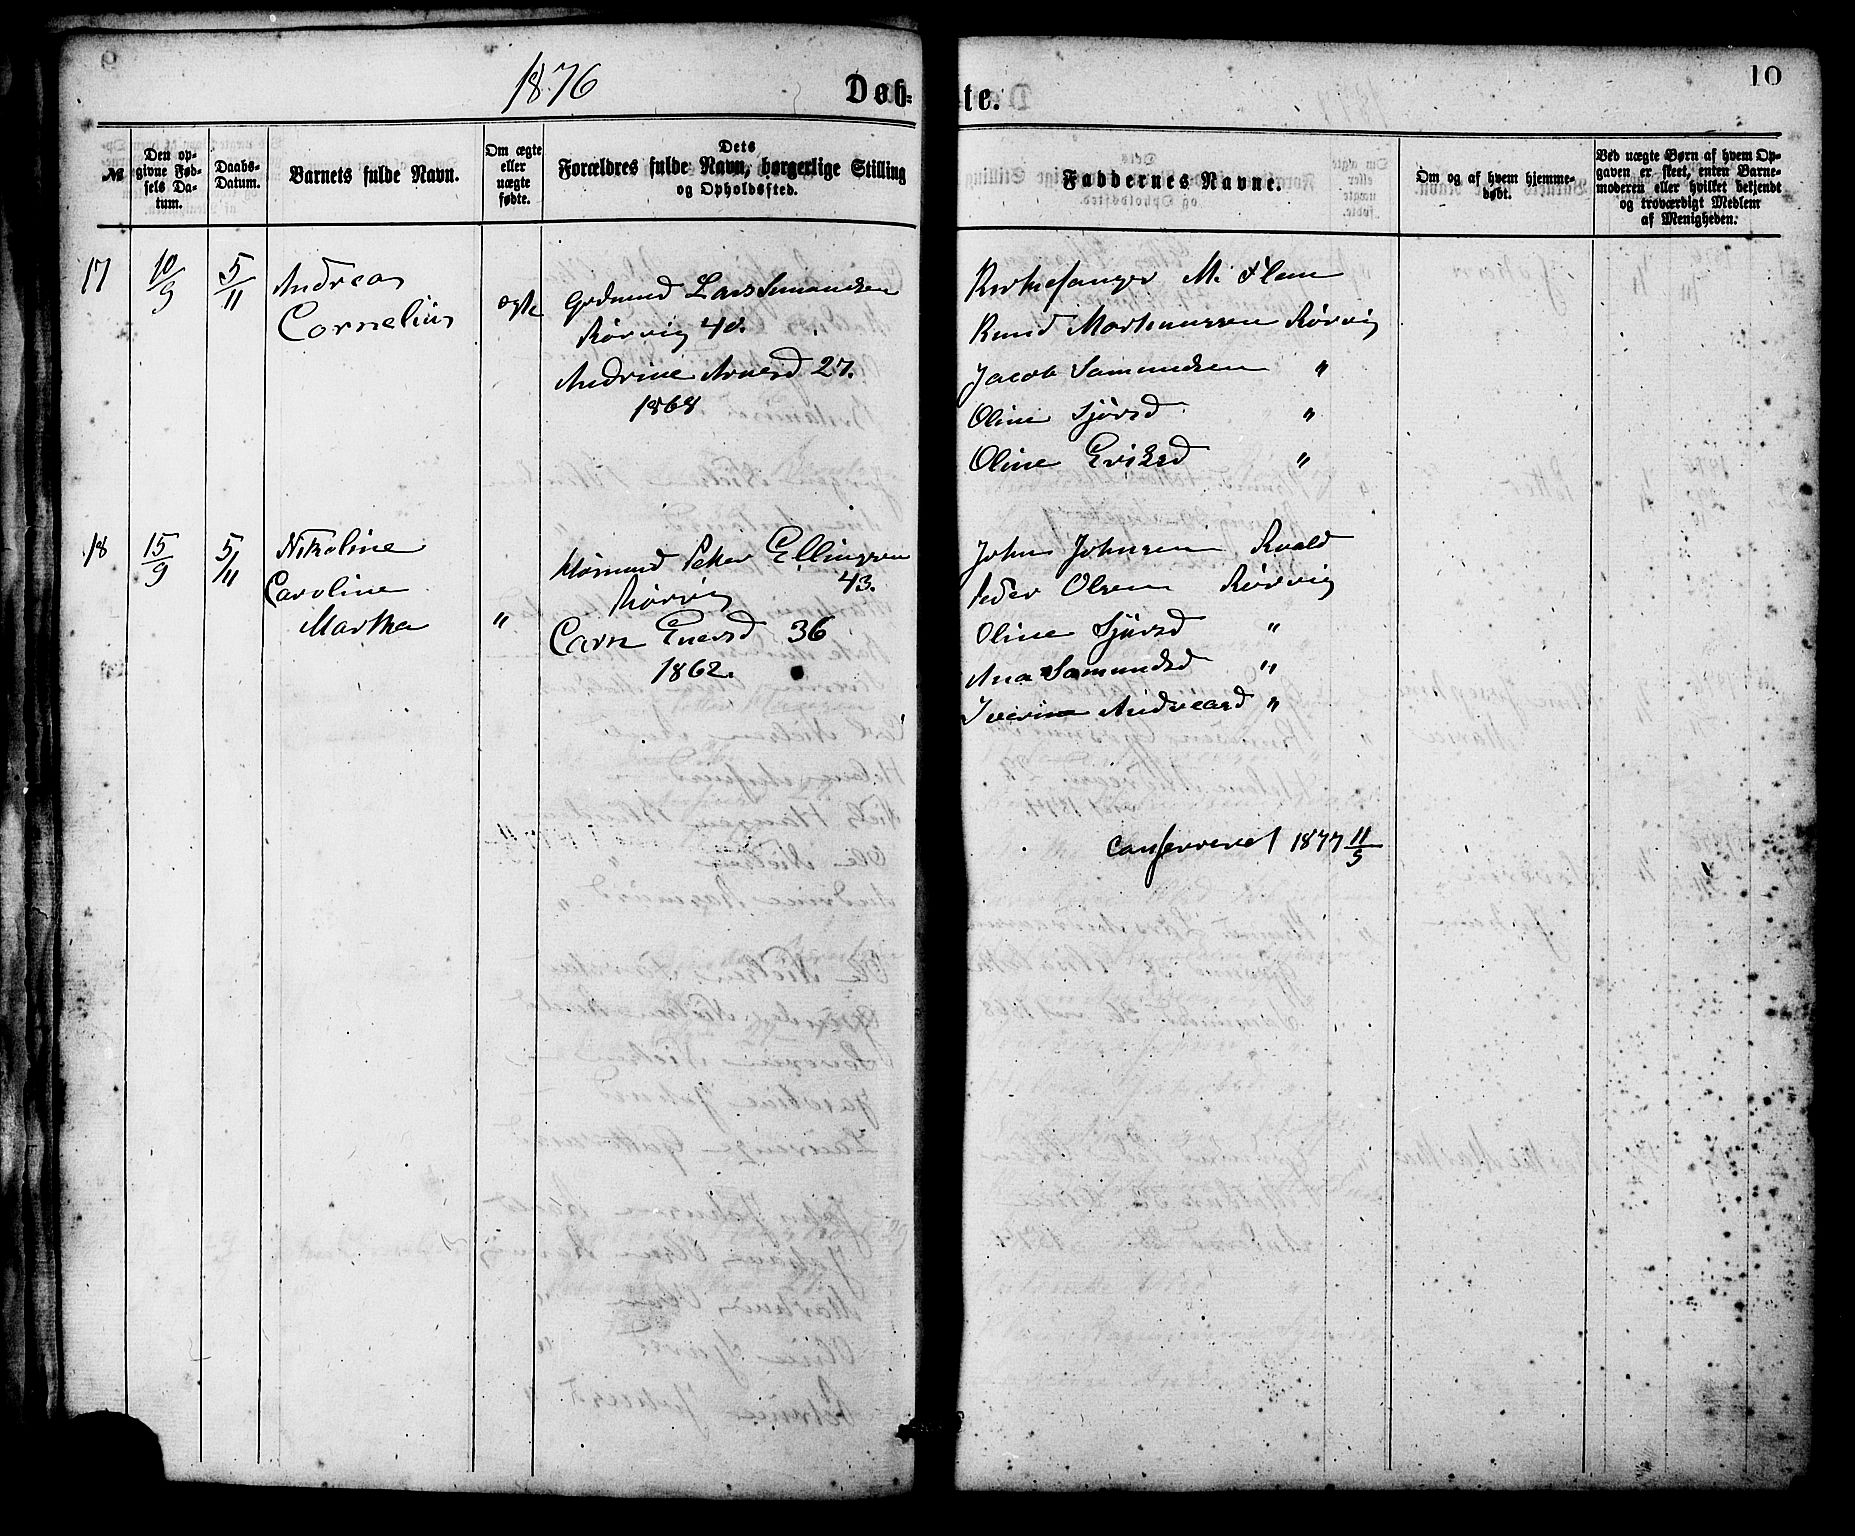 1876
Døb-
te.
10
№
Den op-
givne Fød-
sels Da-
tum.
Daabs-
Datum.
Barnets fulde Navn.
Om ægte
eller
uægte
fødte.
Dets
Forældres fulde Navn, borgerlige Stilling
og Opholdssted.
Faddernes Navne.
Om og af hvem hjemme-
døbt.
Ved uægte Børn af hvem Op-
gaven er skeet, enten Barne-
moderen eller hvilket bekjendt
og troværdigt Medlem
af Menigheden.
17
10/9
5/11
Andreas
Cornelius
ægte
Grdmand Lars Samundsen
Rørvig 40.
Andrine Arnesd 27.
1868
Kirkesanger M. Flem
Knud Marthinussen Rørvig
Jacob Samundsen "
Oline Sjursd "
Oline Eriksd "
18
15/9
5/11
Nikoline
Caroline
Martha
"
Husmand Peter Ellingsen
Rørvig 43.
Carn Eversd 36
1862.
John Johnsen Roald
Peder Olsen Rørvig
Oline Sjursd "
Ana Samundsd "
Iverine Andreasd "
Confereret 1877 11/5